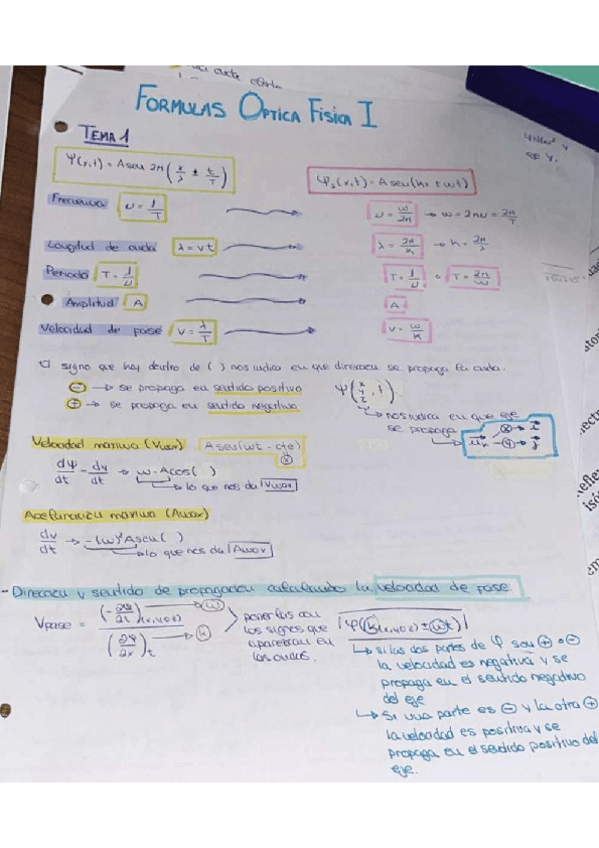 FORMULAS OPTICA FISICA I
TEMA 1
Ψ(x,t) = A sen 2π(x/λ ± t/T)
Ψ₂(x,t) = A sen(kx ± ωt)
Frecuencia ν = 1/T → ν = ω/2π → ω = 2πν = 2π/T
Longitud de onda λ = vt → λ = 2π/k → k = 2π/λ
Periodo T = 1/ν → T = 1/ν o T = 2π/ω
Amplitud A → A
Velocidad de fase V = λ/T → V = ω/k
El signo que hay dentro de ( ) nos indica en que direccion se propaga la onda.
⊖ → se propaga en sentido positivo
⊕ → se propaga en sentido negativo
Ψ(x y z, t)
nos indica en que eje
se propaga
Velocidad maxima (Vmax) A sen(ωt - cte)
dΨ/dt = dv/dt → ω·A cos( )
lo que nos da Vmax
Aceleracion maxima (Amax)
dv/dt → -(ω)²A sen( )
lo que nos da Amax
- Direccion y sentido de propagacion calculando la velocidad de fase.
Vfase = (-∂φ/∂t)(x,y o z) → ω / (∂φ/∂x)t → k
ponerlas con
los signos que
aparezcan en
las ondas.
|φ(k(x,y o z) ± ωt)|
↳ si las dos partes de φ son ⊕ o ⊖
la velocidad es negativa y se
propaga en el sentido negativo
del eje
↳ Si una parte es ⊖ y la otra ⊕
la velocidad es positiva y se
propaga en el sentido positivo del
eje.